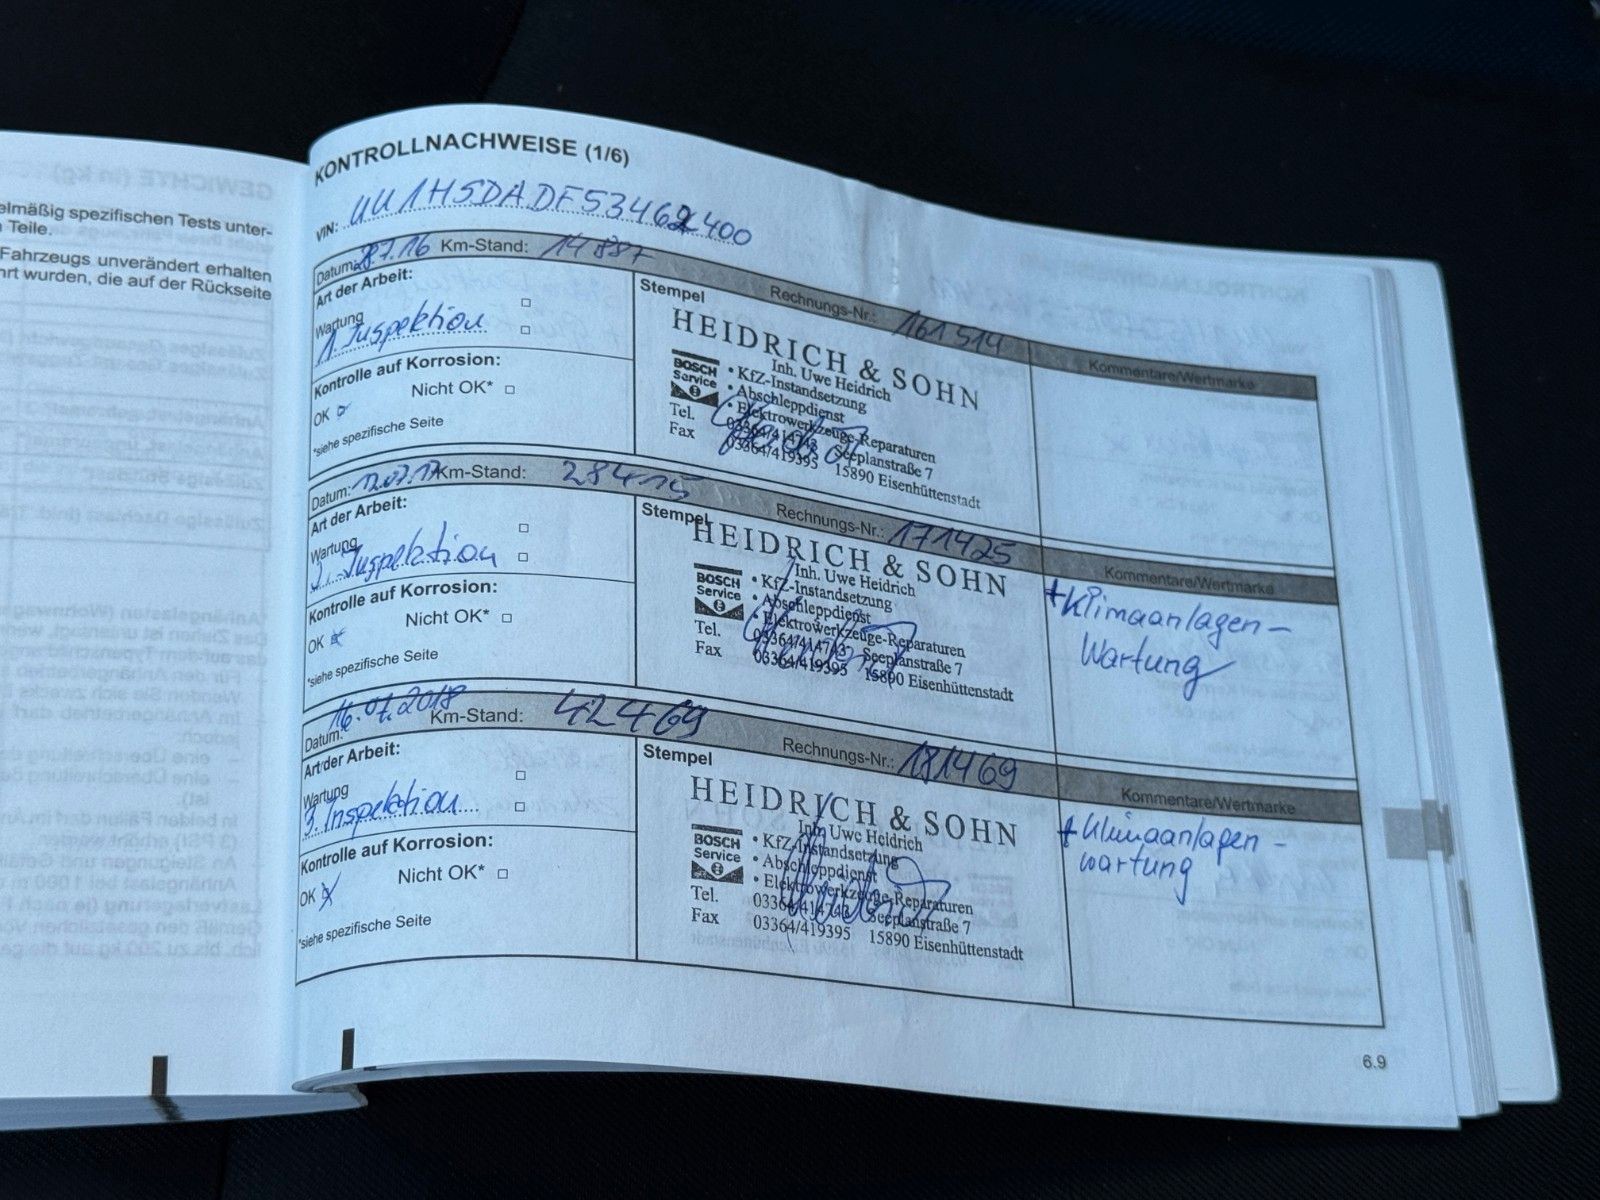 elmäßig spezifischen Tests unter-
Teile.
Fahrzeugs unverändert erhalten
rt wurden, die auf der Rückseite
KONTROLLNACHWEISE (1/6)
VIN: UU1HSDADF53462400
Datum: 28.7.16 Km-Stand: 14 887
Rechnungs-Nr.: 161 514
Art der Arbeit:
Wartung
1. Inspektion
Kontrolle auf Korrosion:
OK Nicht OK*
*siehe spezifische Seite
Stempel
HEIDRICH & SOHN
Inh. Uwe Heidrich
BOSCH
Service
• KfZ-Instandsetzung
• Abschleppdienst
• Elektrowerkzeuge-Reparaturen
Tel. 03364/414743 Seeplanstraße 7
Fax 03364/419395 15890 Eisenhüttenstadt
Kommentare/Wertmarke
Datum: 12.07.17 Km-Stand: 28415
Rechnungs-Nr.: 171425
Art der Arbeit:
Wartung
2. Inspektion
Kontrolle auf Korrosion:
OK Nicht OK*
*siehe spezifische Seite
Stempel
HEIDRICH & SOHN
Inh. Uwe Heidrich
BOSCH
Service
• KfZ-Instandsetzung
• Abschleppdienst
• Elektrowerkzeuge-Reparaturen
Tel. 03364/414743 Seeplanstraße 7
Fax 03364/419395 15890 Eisenhüttenstadt
Kommentare/Wertmarke
+ Klimaanlagen-
Wartung
Datum: 16.07.2018 Km-Stand: 42469
Rechnungs-Nr.: 181469
Art der Arbeit:
Wartung
3. Inspektion
Kontrolle auf Korrosion:
OK Nicht OK*
*siehe spezifische Seite
Stempel
HEIDRICH & SOHN
Inh. Uwe Heidrich
BOSCH
Service
• KfZ-Instandsetzung
• Abschleppdienst
• Elektrowerkzeuge-Reparaturen
Tel. 03364/414743 Seeplanstraße 7
Fax 03364/419395 15890 Eisenhüttenstadt
Kommentare/Wertmarke
+ Klimaanlagen-
wartung
6.9